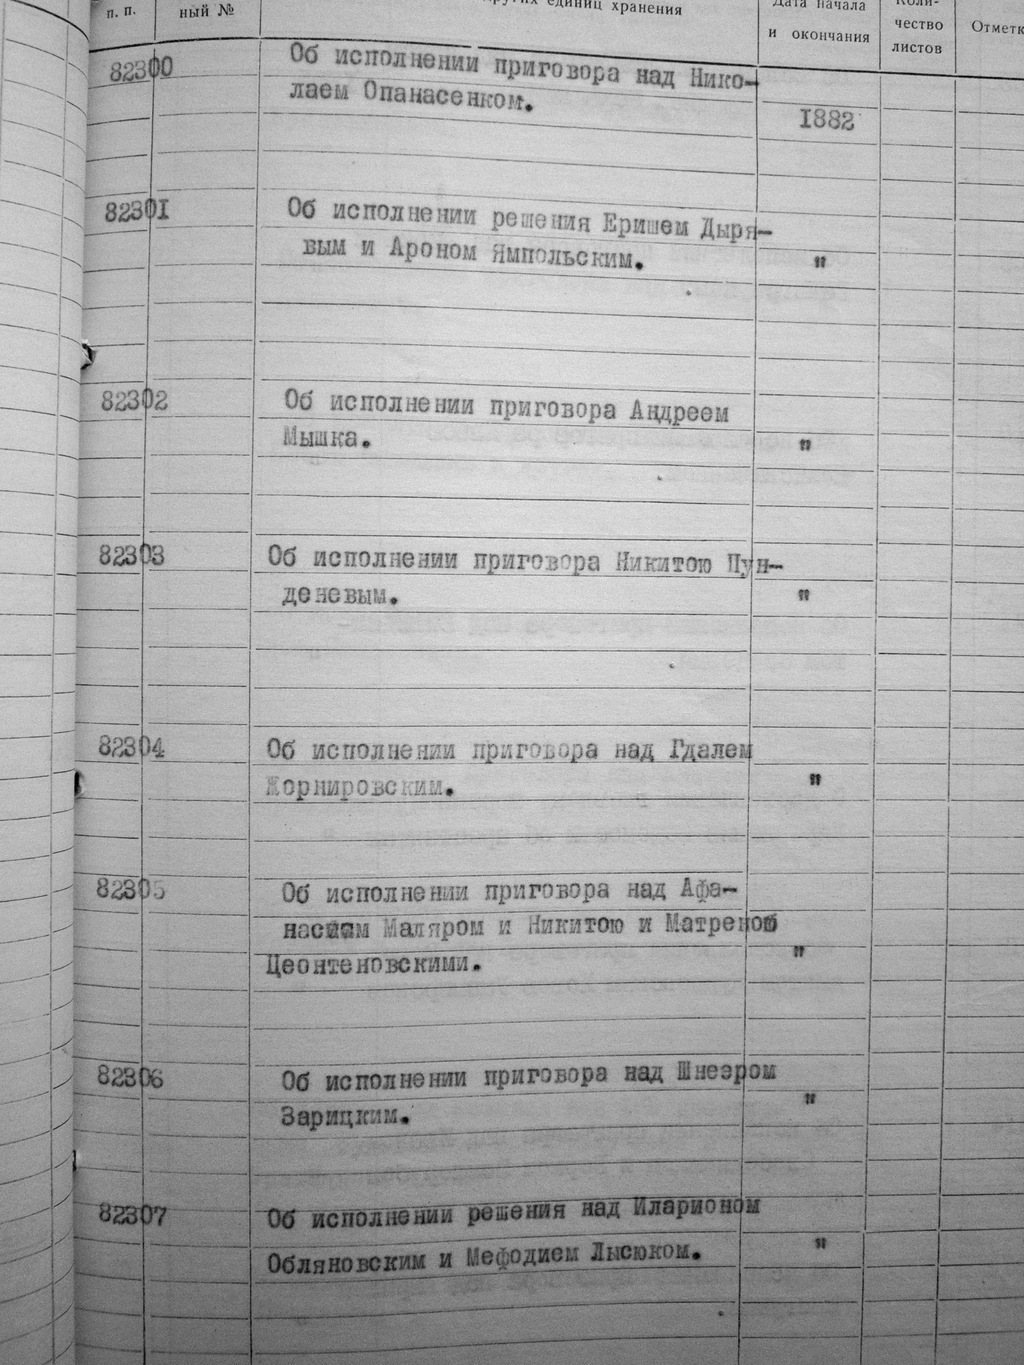 п. п.
ный №
других единиц хранения
Дата начала
и окончания
Коли-
чество
листов
Отметк
82300
Об исполнении приговора над Нико-
лаем Опанасенком.
1882
82301
Об исполнении решения Еришем Дыря-
вым и Ароном Ямпольским.
"
82302
Об исполнении приговора Андреем
Мышка.
"
82303
Об исполнении приговора Никитою Пун-
деневым.
"
82304
Об исполнении приговора над Гдалем
Жорнировским.
"
82305
Об исполнении приговора над Афа-
насием Маляром и Никитою и Матреной
Цеонтеновскими.
"
82306
Об исполнении приговора над Шнеэром
Зарицким.
"
82307
Об исполнении решения над Иларионом
Обляновским и Мефодием Лысюком.
"